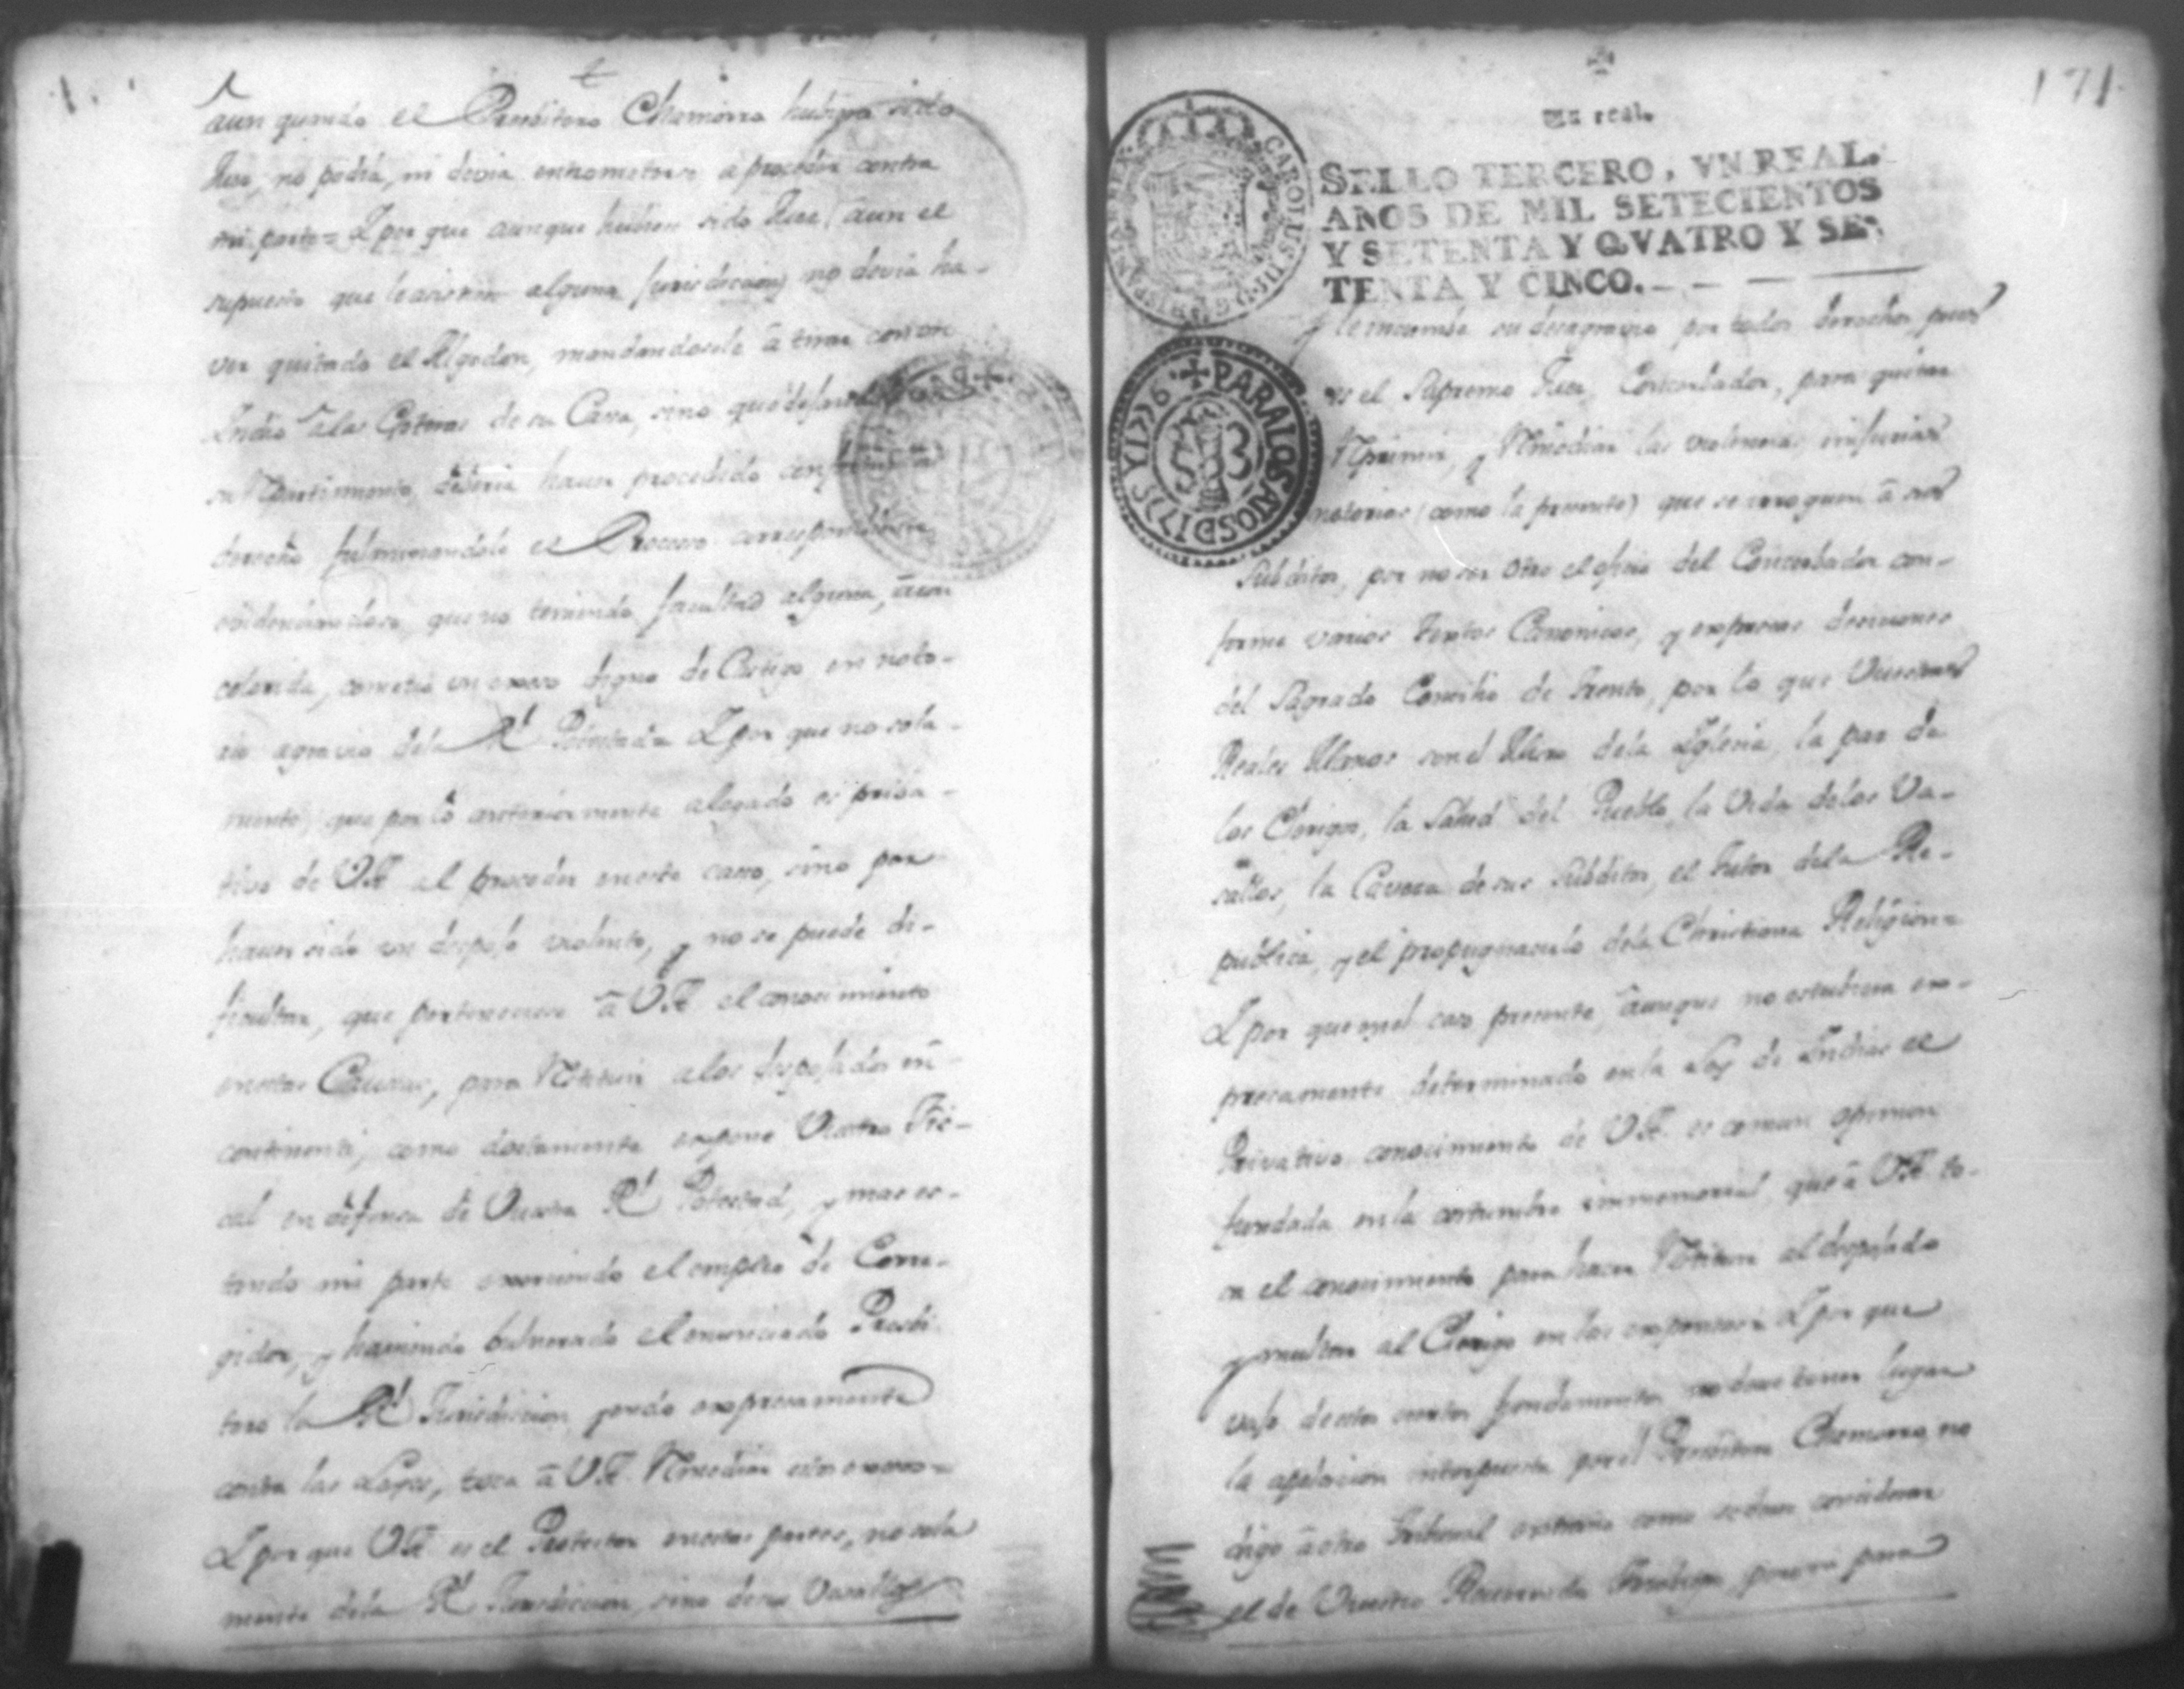 aun quando el Presbitero Chamorro hubiera sido
Juez, no podia, ni devia entrometerse a proceder contra
mi parte= Y por que aunque hubiera sido Juez (aun en
supuesto que le asistiera alguna Jurisdiccion) no devia ha-
ver quitado el Algodon, mandandosele â tirar con un
Indio â las Goteras de su Casa, sino que
su Repartimiento, deberia haver procedido conforme a
derecho fulminandole el Proceso correspondiente
evidenciandose, que no teniendo facultad alguna, âun
colorida, cometió un exceso digno de Castigo en noto-
rio agravio dela Rl Potestad= Y por que no sola-
mente, que por lo anteriormente alegado es priva-
tivo de V.A. el proceder en este caso, sino por
haver sido un despojo violento, y no se puede di-
ficultar, que pertenece â V.A. el conocimiento
en estas Causas, para restituir a los despojados in-
continenti, como doctamente expone Vuestro Fis-
cal en defensa de Vuestra Rl Potestad, y mas es-
tando mi parte exerciendo el empleo de Corre-
gidor, y haviendo bulnerado el enunciado Presbi-
tero la Rl Jurisdiccion yendo expresamente
contra las Leyes, toca â V.A. remediar estos excesos=
Y por que V.A. es el Protector en estas partes, no sola
mente dela Rl Jurisdiccion, sino de sus Vasallos
171
Un real.
SELLO TERCERO, VN REAL.
AÑOS DE MIL SETECIENTOS
Y SETENTA Y QVATRO Y SE-
TENTA Y CINCO.
CAROLUS III D G HISPANIAR REX
PARA LOS AÑOS D 1775 Y 1776
y le incumbe su desagravio por todos derechos, pues
es el Supremo Juez, Conservador, para quitar
reprimir, y remediar las violencias, injurias
notorias (como la presente) que se irroguen â sus
Subditos, por no ser otro el oficio del Conservador con-
forme varios textos Canonicos, y expresas decisiones
del Sagrado Concilio de Trento, por lo que Vuestras
Reales Manos son el Muro dela Yglesia, la paz de
los Clerigos, la Salud del Pueblo, la Vida de los Va-
sallos, la Caveza de sus Subditos, el Tutor dela Re-
publica, y el propugnaculo dela Christiana Religion=
Y por que en el caso presente, âunque no estubiera ex-
presamente determinado en la Ley de Indias el
Privativo conocimiento de V.A. es comun opinion
fundada en la costumbre immemorial, que â V.A. to-
ca el conocimiento para hacer restituir al despojado
y multar al Clerigo en las expensas= Y por que
vajo de estos ciertos fundamentos no deve tener lugar
la apelacion interpuesta por el Presbitero Chamorro, no
digo â otro Tribunal extraño como se deve considerar
el de Vuestro Reverendo Arzobispo, pero ni para